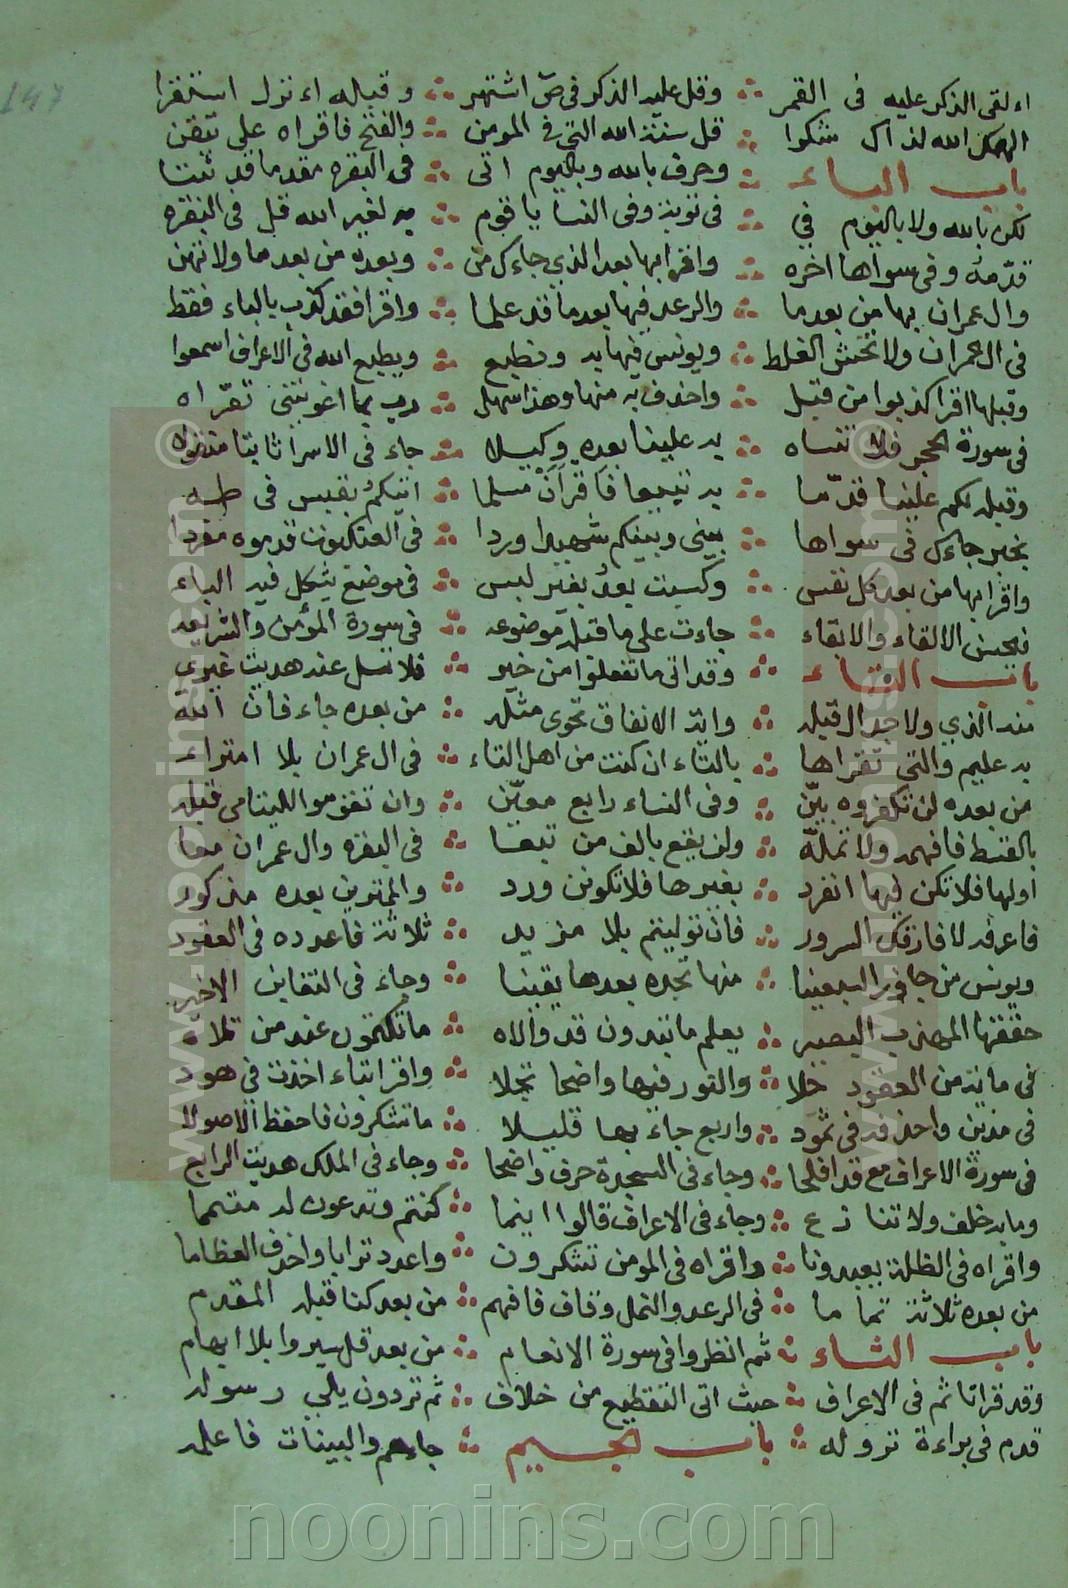 اءلقى الذكر عليه في القمر ∴ وقل عليه الذكر في ص اشتهر ∴ وقبله اءنزل استقرا
الهكم الله لذاك شكوا ∴ قل سنة الله التي في المومن ∴ والفتح فاقراه على تيقن
باب الباء ∴ وحرف بالله وباليوم اتى ∴ في البقره مقدما قد ثبتا
لكن بالله ولا باليوم في ∴ في توبة وفى النسا يا قوم ∴ به لغير الله قبل في البقره
قدّمه وفى سواها اخره ∴ واقرا بها بعد الذي جاءك من ∴ وبعده من بعد ما ولا تهن
وال عمران بها من بعد ما ∴ والرعد فيها بعد ما قد علما ∴ واقرا فقد كذب بالباء فقط
في ال عمران ولا تخش الغلط ∴ ويونس فيها به ونطبع ∴ ويطبع الله في الاعراف اسمعوا
وقبلها اقرا كذبوا من قبل ∴ واحذف به منها وهذا سهل ∴ رب بما اغويتني تقراه
في سورة الحجر فلا تنساه ∴ به علينا بعده وكيلا ∴ جاء في الاسرا ثابتا منقولا
وقبله لكم علينا قدّما ∴ به تبيعا فاقرأن مسلما ∴ اتيكم بقبس في طه
بخبر جاءك في سواها ∴ بيني وبينكم شهيدا وردا ∴ في العنكبوت قدموه مفردا
واقرا بها من بعد كل نفس ∴ وكسبت بعد بغير لبس ∴ في موضع يشكل فيه الباء
فيحسن الالقاء والابقاء ∴ جاءت على ما قبله موضوعه ∴ في سورة المؤمن والشريعه
باب التاء ∴ وقد اتى ما تفعلوا من خير ∴ فلا تسل عند هديت غيري
منه الذي ولا جدال قبله ∴ واية الانفاق تحوى مثله ∴ من بعده جاء فان الله
به عليم والتي تقراها ∴ بالتاء ان كنت من اهل التاء ∴ في ال عمران بلا امتراء
من بعده لن تكفروه بيّن ∴ وفى النساء رابع معيّن ∴ وان تقوموا لليتامى قبله
بالقسط فافهمه ولا تملّه ∴ ولن يقع بالف من تبعا ∴ في البقره وال عمران معا
اولها فلا تكن فيها انفرد ∴ بغيرها فلا تكونن ورد ∴ والممترين بعده مذكور
فاعرفه لا فارقك السرور ∴ فان توليتم بلا مزيد ∴ ثلاثة فاعدده في العقود
ويونس من جا السبعينا ∴ منها تجده بعدها يقينا ∴ وجاء في التغابن الاخير
حققها المهذب البصير ∴ يعلم ما تبدون قد والاه ∴ ما تكتمون عند من تلاه
في مائة من العقود حلا ∴ والنور فيها واضحا تجلا ∴ واقرا بتاء اخذت في هود
في مدين واحذفه في ثمود ∴ واربع جاء بها قليلا ∴ ما تشكرون فاحفظ الاصولا
في سورة الاعراف مع قد افلحا ∴ وجاء في السجدة حرف واضحا ∴ وجاء في الملك هديت الرابع
وما به خلف ولا تنازع ∴ وجاء في الاعراف قالوا اينما ∴ كنتم وتدعون له متمما
واقراه في الظلة يعبدونا ∴ واقراه في المومن تشركون ∴ واعدد ترابا واحذف العظاما
من بعده ثلاثة تماما ∴ في الرعد والنمل وقاف فافهم ∴ من بعد كنا قبله المقدم
باب الثاء ∴ ثم انظروا في سورة الانعام ∴ من بعد قل سيروا بلا ابهام
وقد قراتا ثم في الاعراف ∴ حيث اتى التقطيع من خلاف ∴ ثم تردون يلي رسوله
قدم في براءة نزوله ∴ باب الجيم ∴ جاءهم والبينات فاعلمه
www.noonins.com ©
www.noonins.com ©
noonins.com